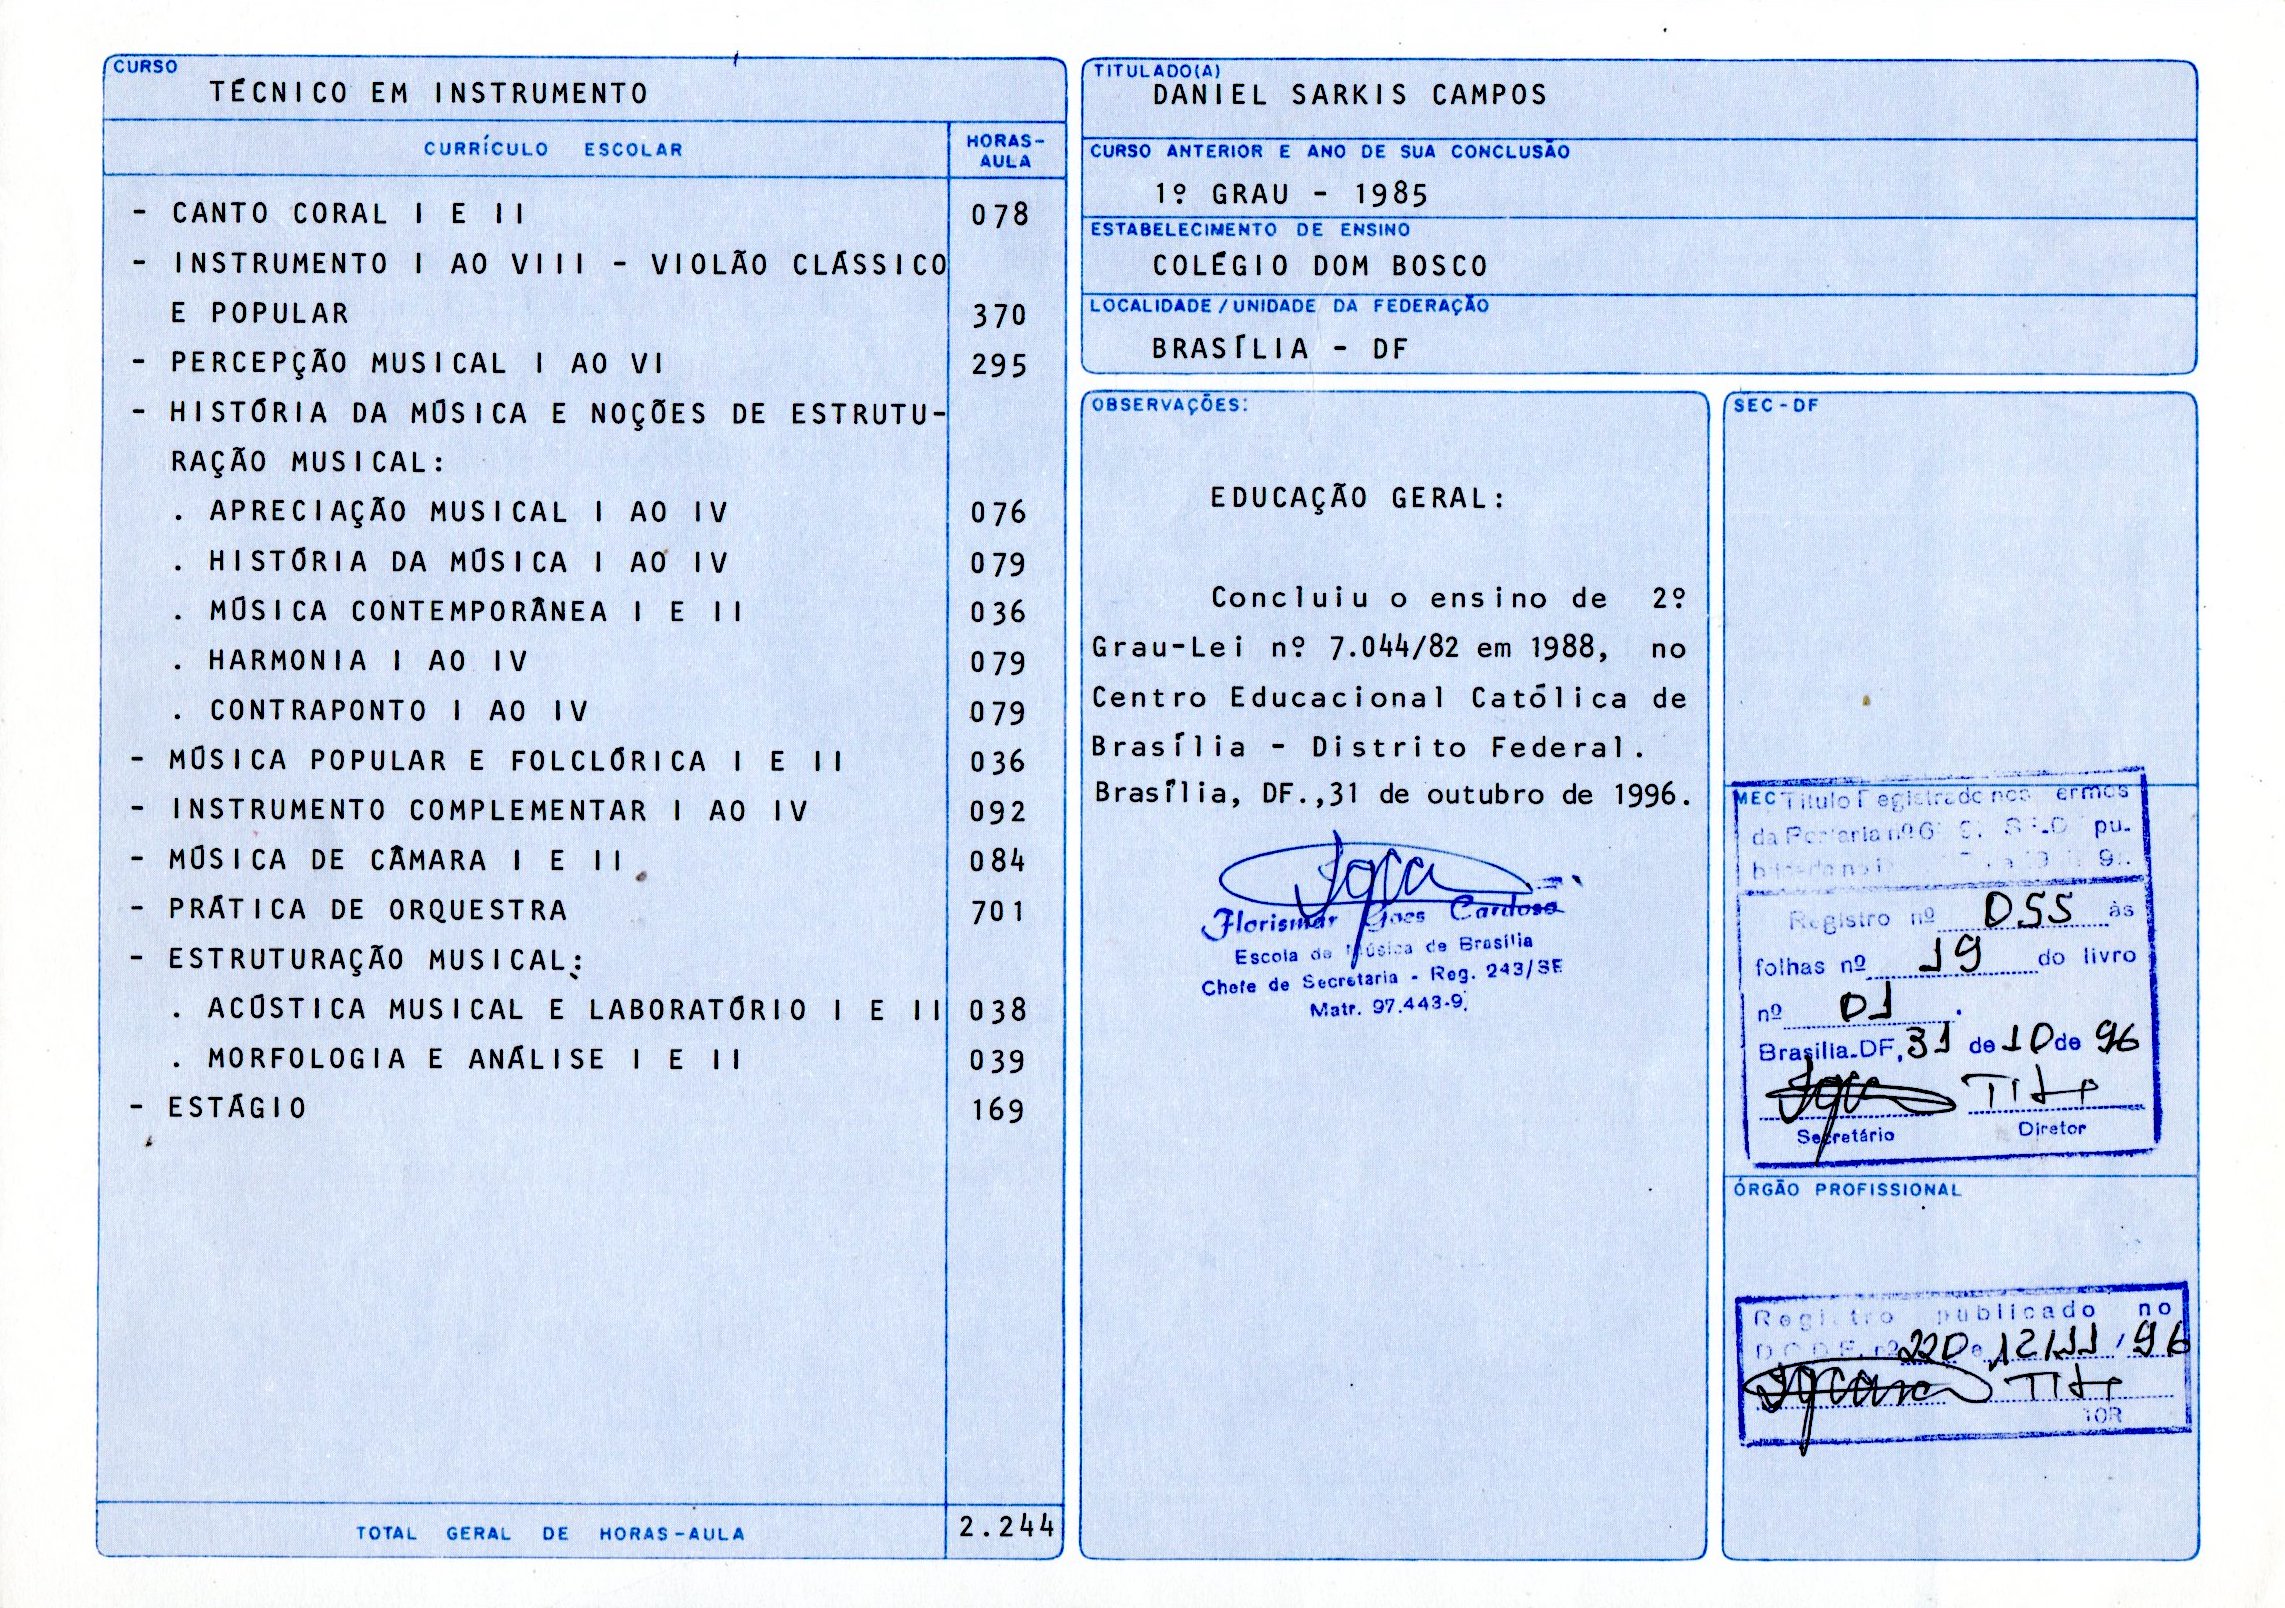 CURSO
TÉCNICO EM INSTRUMENTO
CURRÍCULO ESCOLAR
HORAS-
AULA
- CANTO CORAL I E II 078
- INSTRUMENTO I AO VIII - VIOLÃO CLÁSSICO
E POPULAR 370
- PERCEPÇÃO MUSICAL I AO VI 295
- HISTÓRIA DA MÚSICA E NOÇÕES DE ESTRUTU-
RAÇÃO MUSICAL:
. APRECIAÇÃO MUSICAL I AO IV 076
. HISTÓRIA DA MÚSICA I AO IV 079
. MÚSICA CONTEMPORÂNEA I E II 036
. HARMONIA I AO IV 079
. CONTRAPONTO I AO IV 079
- MÚSICA POPULAR E FOLCLÓRICA I E II 036
- INSTRUMENTO COMPLEMENTAR I AO IV 092
- MÚSICA DE CÂMARA I E II 084
- PRÁTICA DE ORQUESTRA 701
- ESTRUTURAÇÃO MUSICAL:
. ACÚSTICA MUSICAL E LABORATÓRIO I E II 038
. MORFOLOGIA E ANÁLISE I E II 039
- ESTÁGIO 169
TOTAL GERAL DE HORAS-AULA 2.244
TITULADO(A)
DANIEL SARKIS CAMPOS
CURSO ANTERIOR E ANO DE SUA CONCLUSÃO
1º GRAU - 1985
ESTABELECIMENTO DE ENSINO
COLÉGIO DOM BOSCO
LOCALIDADE/UNIDADE DA FEDERAÇÃO
BRASÍLIA - DF
OBSERVAÇÕES:
EDUCAÇÃO GERAL:
Concluiu o ensino de 2º
Grau-Lei nº 7.044/82 em 1988, no
Centro Educacional Católica de
Brasília - Distrito Federal.
Brasília, DF.,31 de outubro de 1996.
Florismar Goes Cardoso
Escola de Música de Brasília
Chefe de Secretaria - Reg. 243/SE
Matr. 97.443-9.
SEC-DF
MEC
Título Registrado nos ermos
da Portaria nº pu-
Registro nº 055 às
folhas nº 19 do livro
nº 01
Brasília-DF, 31 de 10 de 96
Secretário Diretor
ÓRGÃO PROFISSIONAL
Registro publicado no
nº 220 12/11/96
TOR